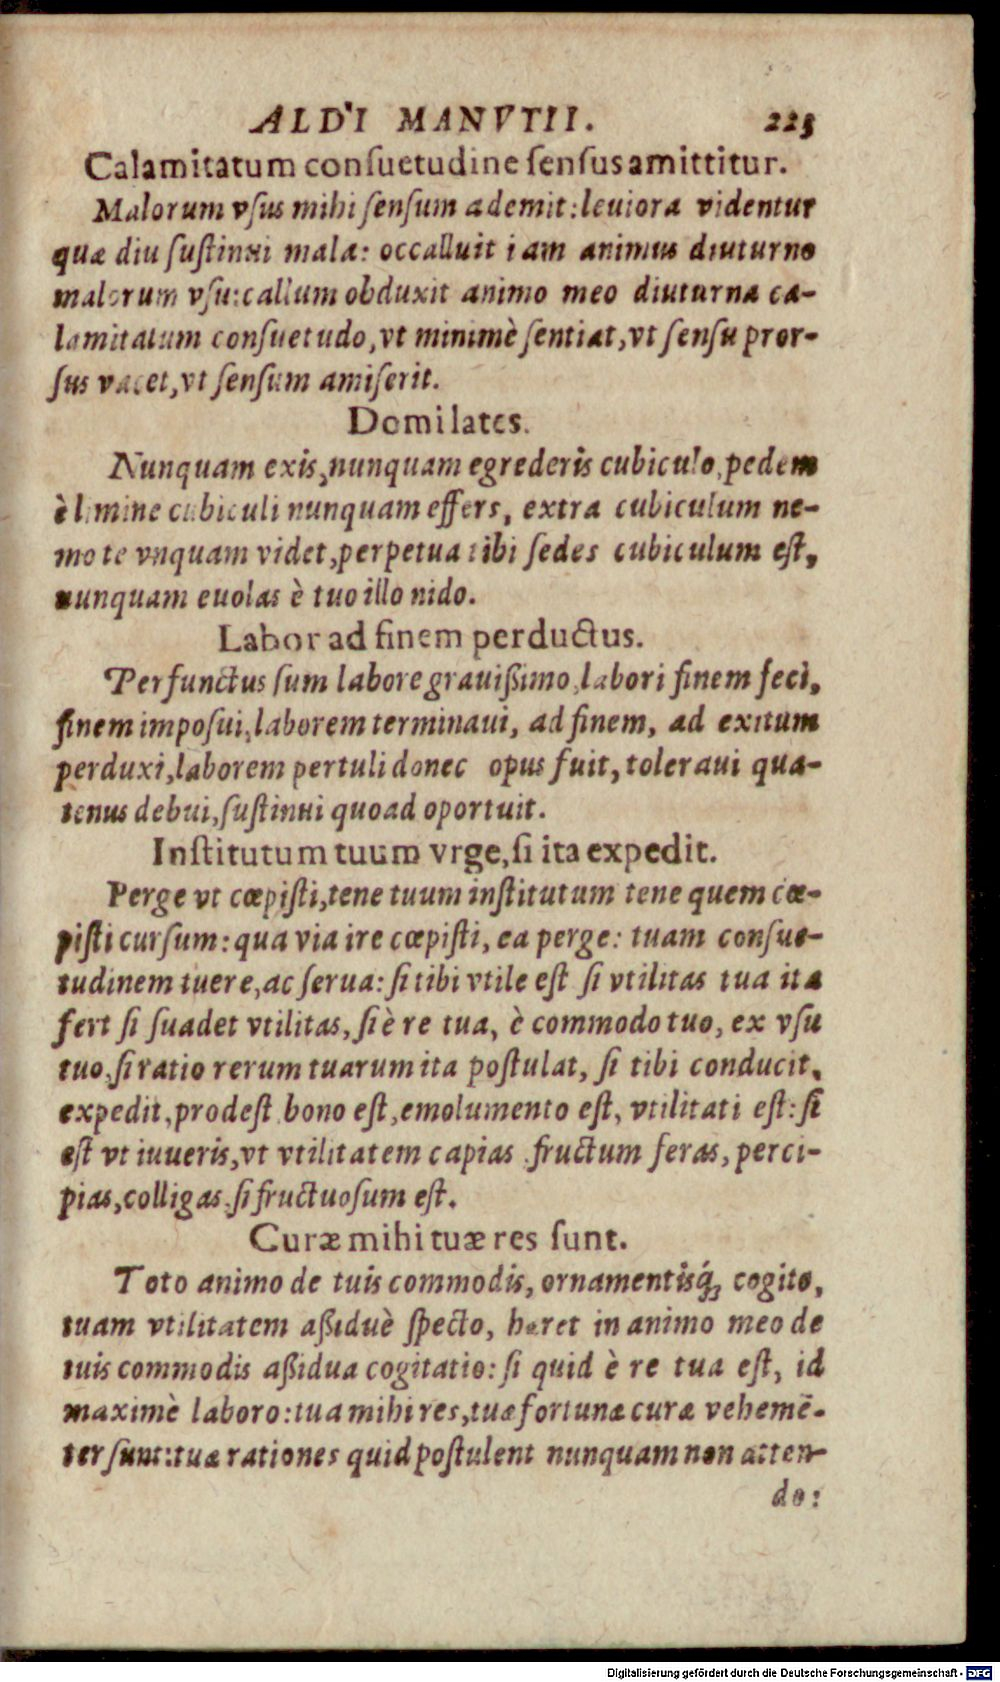 ALDI MANVTII. 225
Calamitatum conſuetudine ſenſus amittitur.
Malorum vſus mihi ſenſum ademit: leuiora videntur
quæ diu ſuſtinui mala: occalluit iam animus diuturno
malorum vſu: callum obduxit animo meo diuturna ca-
lamitatum conſuetudo, vt minimè ſentiat, vt ſenſu pror-
ſus vacet, vt ſenſum amiſerit.
Domi lates.
Nunquam exis, nunquam egrederis cubiculo, pedem
è limine cubiculi nunquam effers, extra cubiculum ne-
mo te vnquam videt, perpetua tibi ſedes cubiculum eſt,
nunquam euolas è tuo illo nido.
Labor ad finem perductus.
Perfunctus ſum labore grauißimo, labori finem feci,
finem impoſui, laborem terminaui, ad finem, ad exitum
perduxi, laborem pertuli donec opus fuit, toleraui qua-
tenus debui, ſuſtinui quoad oportuit.
Inſtitutum tuum vrge, ſi ita expedit.
Perge vt cœpiſti, tene tuum inſtitutum tene quem cœ-
piſti curſum: qua via ire cœpiſti, ea perge: tuam conſue-
tudinem tuere, ac ſerua: ſi tibi vtile eſt ſi vtilitas tua ita
fert ſi ſuadet vtilitas, ſi è re tua, è commodo tuo, ex vſu
tuo, ſi ratio rerum tuarum ita poſtulat, ſi tibi conducit,
expedit, prodeſt bono eſt, emolumento eſt, vtilitati eſt: ſi
eſt vt iuueris, vt vtilitatem capias fructum feras, perci-
pias, colligas, ſi fructuoſum eſt.
Curæ mihi tuæ res ſunt.
Toto animo de tuis commodis, ornamentisq́; cogito,
tuam vtilitatem aßiduè ſpecto, hæret in animo meo de
tuis commodis aßidua cogitatio: ſi quid è re tua eſt, id
maximè laboro: tua mihi res, tuæ fortunæ curæ vehemē-
ter ſunt: tuæ rationes quid poſtulent nunquam non atten-
do:
Digitalisierung gefördert durch die Deutsche Forschungsgemeinschaft - DFG